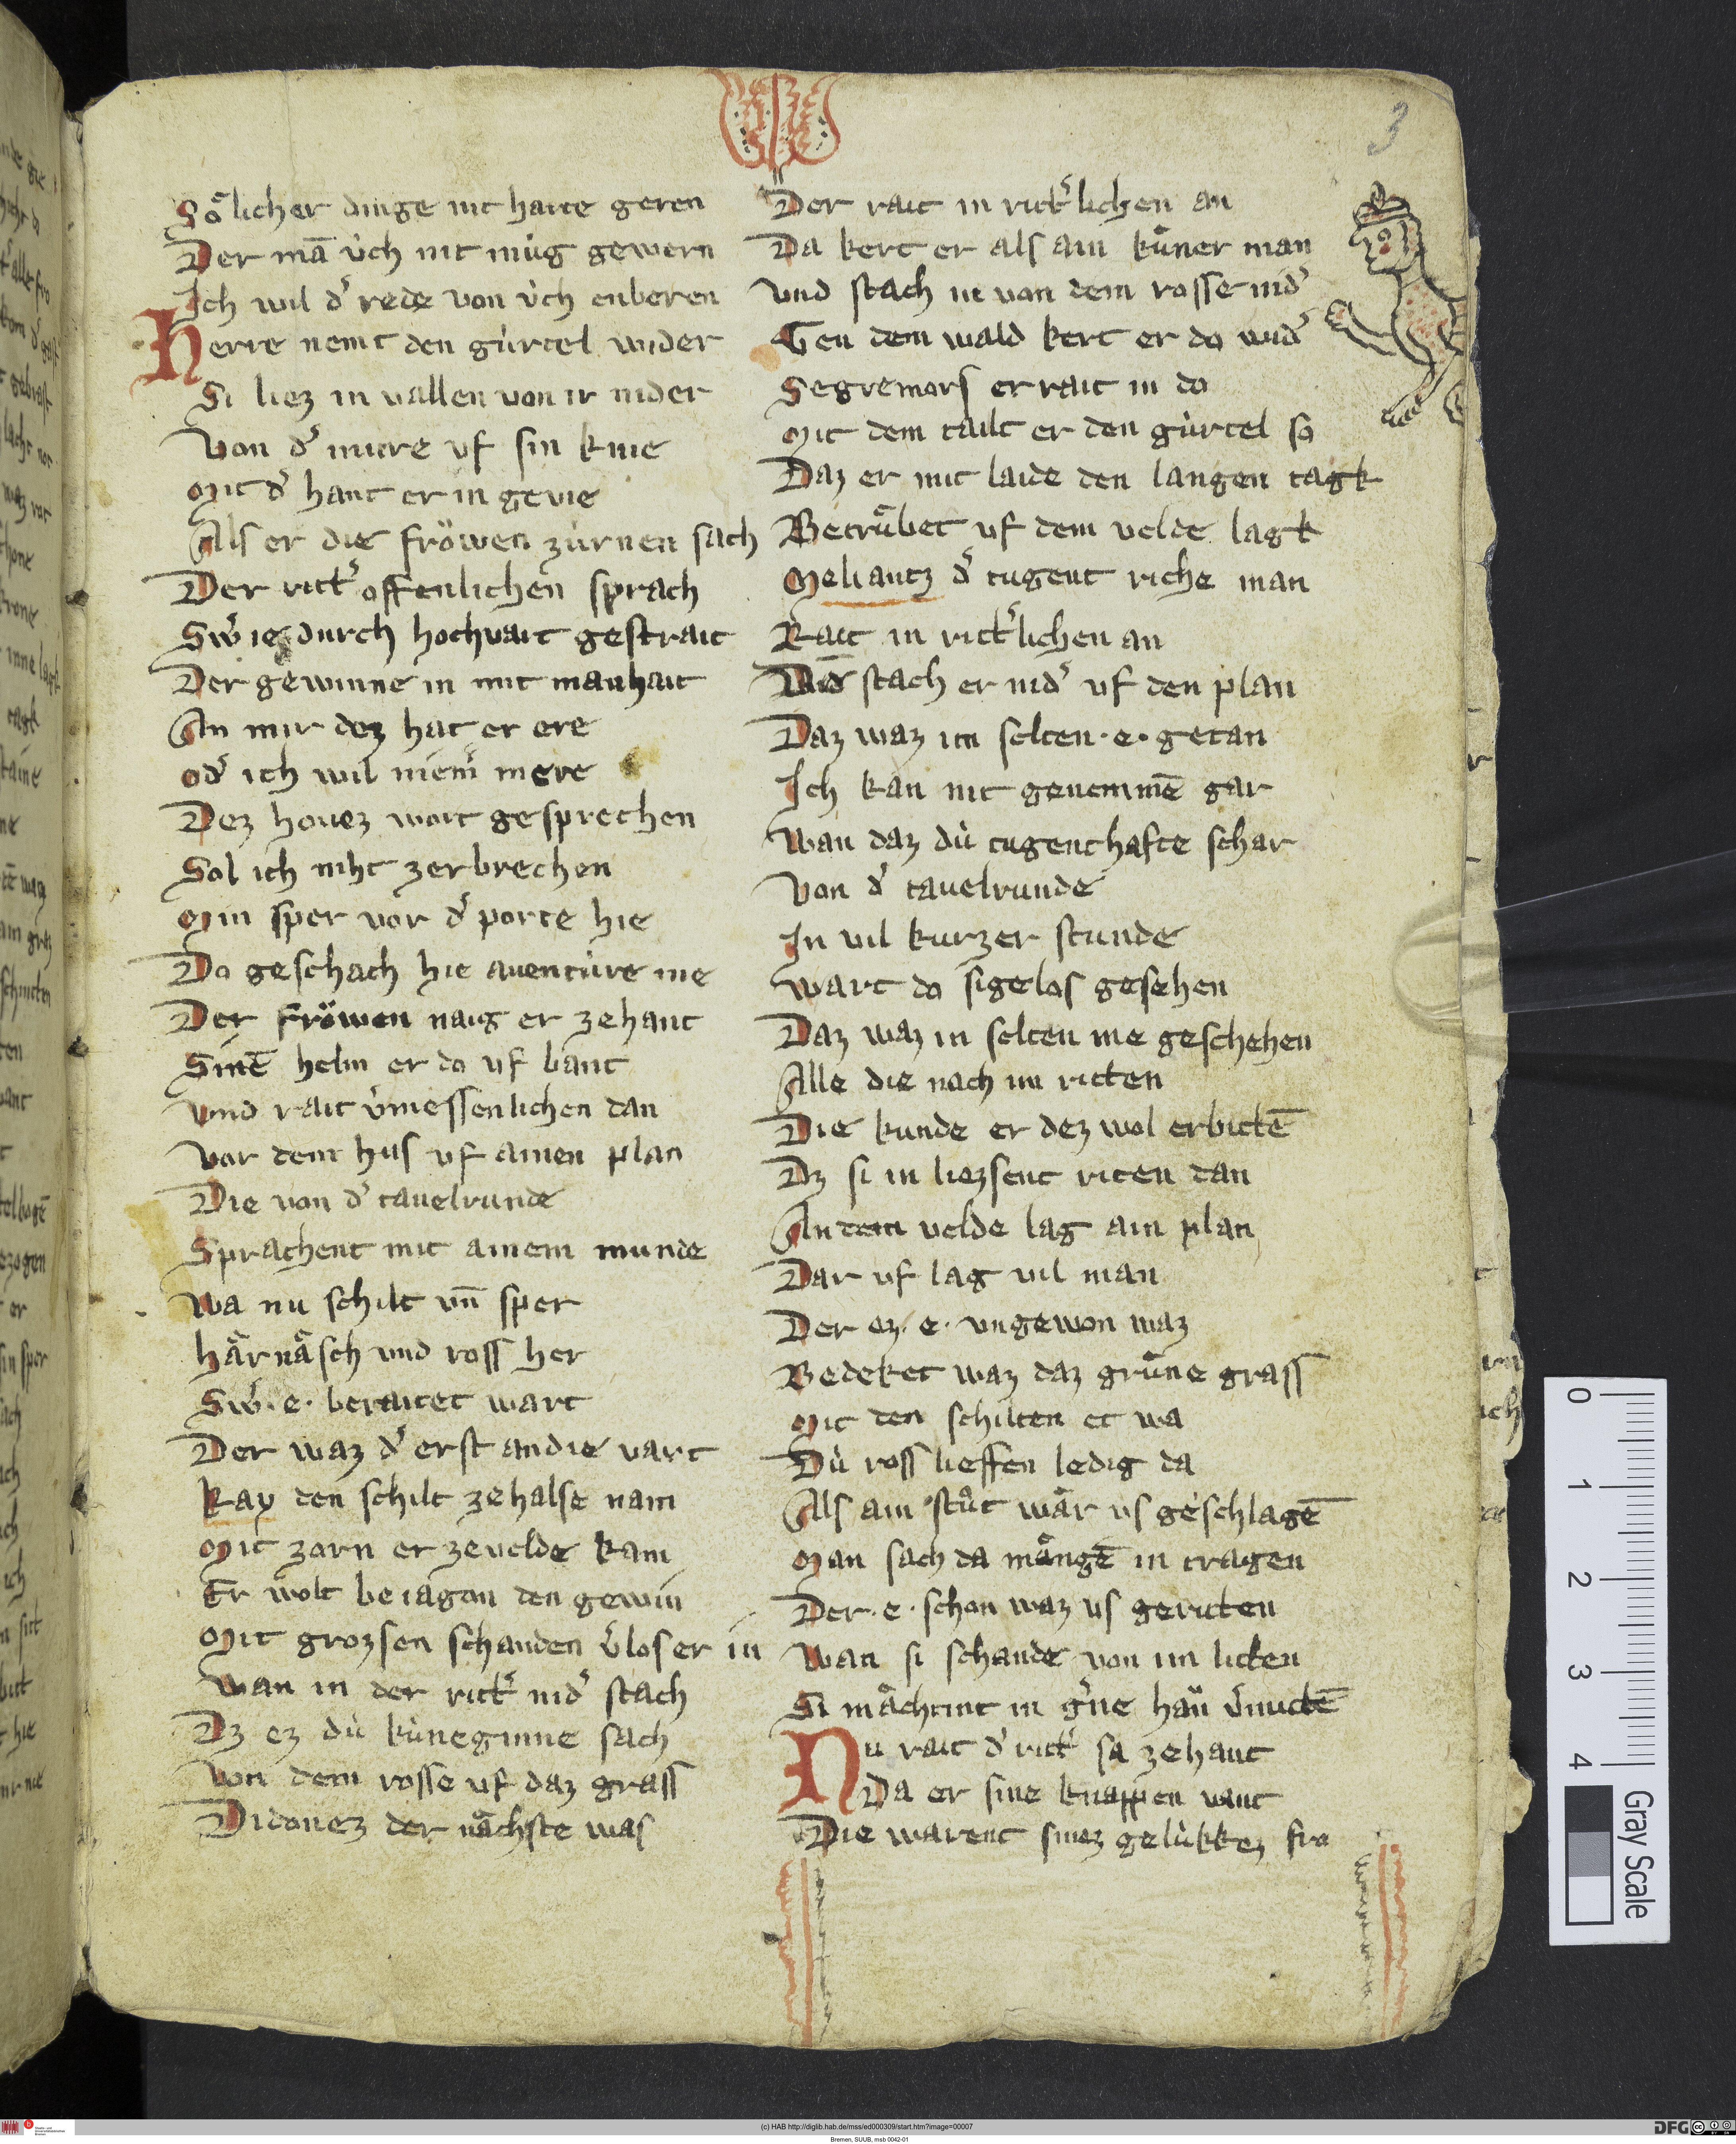 3
Sölicher dinge nit hatte geren
Der mā v̇ch nit mu̇g gewern
Ich wil dˀ rede von v̇ch enberen
Herre nemt den gu̇rtel wider
Si liez in vallen von ir nider
Von dˀ mure vf sin knie
Mit dˀ hant er in gevie
Als er die fröwen zu̇rnen sach
Der rittˀ offenlichen sprach
Swˀ ie durch hochvart gestrait
Der gewinne in mit manhait
An mir dez hat er ere
odˀ ich wil niemˀ mere
Dez houez wort gesprechen
Sol ich niht zerbrechen
Min sper vor dˀ porte hie
Do geschach hie auentu̇re nie
Der fröwen naig er zehant
Sinē helm er do vf bant
vnd rait v̇messenlichen dan
Vor dem hus vf ainen plan
Die von dˀ tauelrunde
Sprachent mit ainem munde
Wa nu schilt vn̄ sper
Härnäsch vnd ross her
Swˀ e· beraitet wart
Der waz dˀ erst an die vart
Kay den schilt ze halse nam
Mit zorn er ze velde kam
Er wolt beiagon den gewin
Mit grozsen schanden v̇los er in
Wan in der rittˀ nidˀ stach
Dz ez du̇ ku̇neginne sach
Von dem rosse vf daz grass
Didonez der nächste was
Der rait in rittˀlichen an
Da kert er als ain ku̇ner man
vnd stach in von dem rosse nidˀ
Gen dem wald kert er do widˀ
Segremors er rait in do
Mit dem tailt er den gu̇rtel so
Daz er mit laide den langen tagk
Betru̇bet vf dem velde lagk
Meliantz dˀ tugent riche man
Rait in rittˀlichen an
Vnd stach er nidˀ vf den plan
Daz waz im selten ·e· getan
Ich kan nit genemmē gar
Wan daz du̇ tugenthafte schar
Von dˀ tauelrunde
In vil kurzer stunde
Wart do sigelos gesehen
Daz waz in selten me geschehen
Alle die nach im ritten
Die kunde er dez wol erbittē
Dz si in liezsent riten dan
An dem velde lag ain plan
Dar vf lag vil man
Der ez ·e· vngewon waz
Bedeket waz daz gru̇ne grass
Mit den schilten et wa
Du̇ ross lieffen ledig da
Als ain stu̇t wär vs geschlagē
Man sach da mängē in tragen
Der ·e· schon waz vs geriten
Wan si schande von im litten
Si mächtint in gˀne han v̇mittē
Nu rait dˀ rittˀ sa zehant
Da er sine knappen vant
Die warent sinez gelu̇kkez fro
0 1 2 3 4
Gray Scale
(c) HAB http://diglib.hab.de/mss/ed000309/start.htm?image=00007
Bremen, SUUB, msb 0042-01
DFG